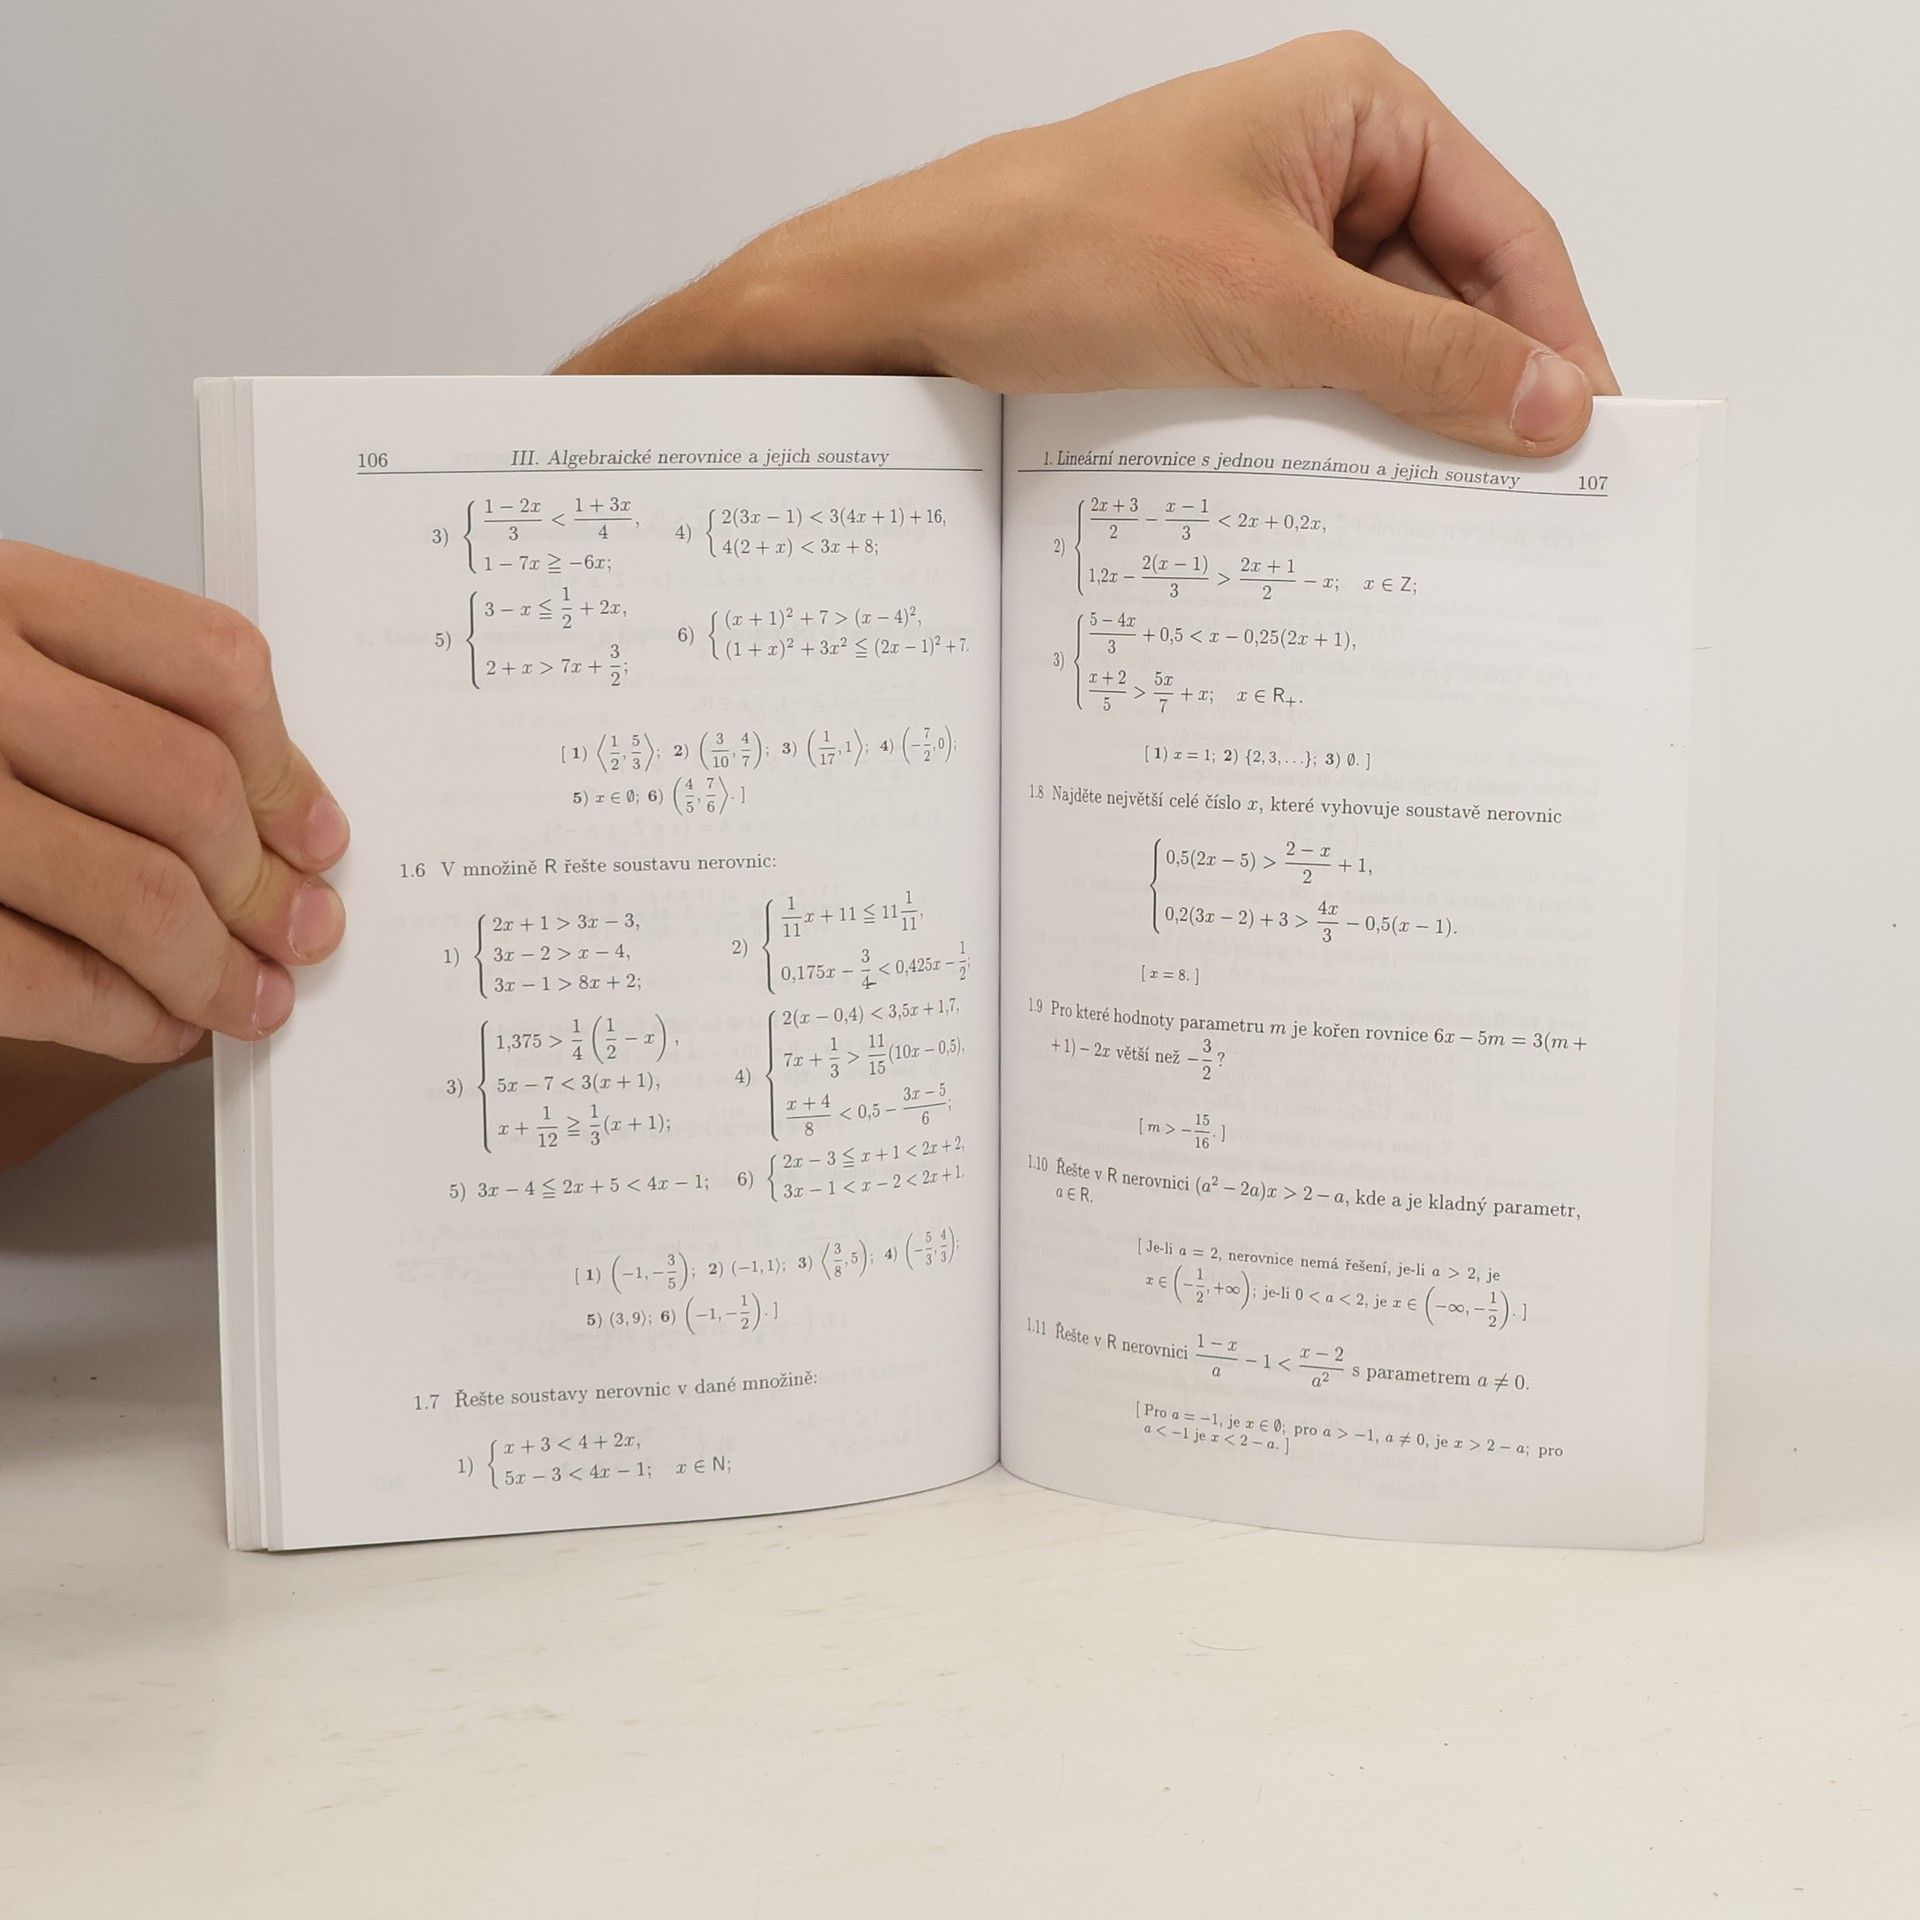 106 III. Algebraické nerovnice a jejich soustavy
3) { (1 − 2x)/3 < (1 + 3x)/4,
1 − 7x ≧ −6x;
4) { 2(3x − 1) < 3(4x + 1) + 16,
4(2 + x) < 3x + 8;
5) { 3 − x ≦ 1/2 + 2x,
2 + x > 7x + 3/2;
6) { (x + 1)² + 7 > (x − 4)²,
(1 + x)² + 3x² ≦ (2x − 1)² + 7.
[ 1) ⟨1/2, 5/3⟩; 2) (3/10, 4/7); 3) (1/17, 1⟩; 4) (−7/2, 0);
5) x ∈ ∅; 6) (4/5, 7/6⟩. ]
1.6 V množině R řešte soustavu nerovnic:
1) { 2x + 1 > 3x − 3,
3x − 2 > x − 4,
3x − 1 > 8x + 2;
2) { 1/11 x + 11 ≦ 11 1/11,
0,175x − 3/4 < 0,425x − 1/2;
3) { 1,375 > 1/4 (1/2 − x),
5x − 7 < 3(x + 1),
x + 1/12 ≧ 1/3 (x + 1);
4) { 2(x − 0,4) < 3,5x + 1,7,
7x + 1/3 > 11/15 (10x − 0,5),
(x + 4)/8 < 0,5 − (3x − 5)/6;
5) 3x − 4 ≦ 2x + 5 < 4x − 1;
6) { 2x − 3 ≦ x + 1 < 2x + 2,
3x − 1 < x − 2 < 2x + 1.
[ 1) (−1, −3/5); 2) (−1, 1⟩; 3) ⟨3/8, 5); 4) (−5/3, 4/3);
5) (3, 9⟩; 6) (−1, −1/2). ]
1.7 Řešte soustavy nerovnic v dané množině:
1) { x + 3 < 4 + 2x,
5x − 3 < 4x − 1; x ∈ N;
1. Lineární nerovnice s jednou neznámou a jejich soustavy 107
2) { (2x + 3)/2 − (x − 1)/3 < 2x + 0,2x,
1,2x − 2(x − 1)/3 > (2x + 1)/2 − x; x ∈ Z;
3) { (5 − 4x)/3 + 0,5 < x − 0,25(2x + 1),
(x + 2)/5 > 5x/7 + x; x ∈ R₊.
[ 1) x = 1; 2) {2, 3, …}; 3) ∅. ]
1.8 Najděte největší celé číslo x, které vyhovuje soustavě nerovnic
{ 0,5(2x − 5) > (2 − x)/2 + 1,
0,2(3x − 2) + 3 > 4x/3 − 0,5(x − 1).
[ x = 8. ]
1.9 Pro které hodnoty parametru m je kořen rovnice 6x − 5m = 3(m +
+1) − 2x větší než −3/2 ?
[ m > −15/16. ]
1.10 Řešte v R nerovnici (a² − 2a)x > 2 − a, kde a je kladný parametr,
a ∈ R.
[ Je-li a = 2, nerovnice nemá řešení, je-li a > 2, je
x ∈ (−1/2, +∞); je-li 0 < a < 2, je x ∈ (−∞, −1/2). ]
1.11 Řešte v R nerovnici (1 − x)/a − 1 < (x − 2)/a² s parametrem a ≠ 0.
[ Pro a = −1, je x ∈ ∅; pro a > −1, a ≠ 0, je x > 2 − a; pro
a < −1 je x < 2 − a. ]